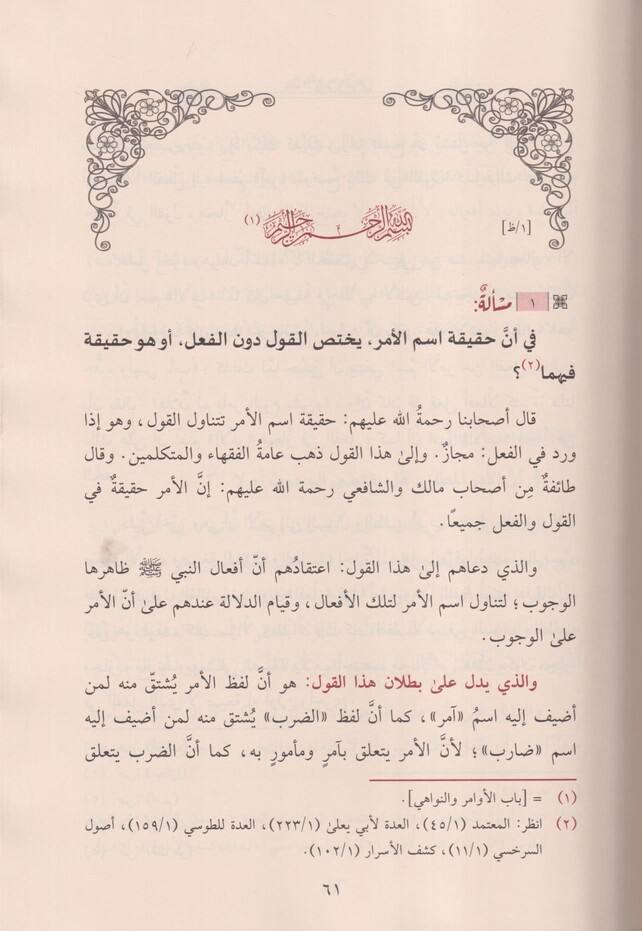 [١/ظ]
بسم الله الرحمن الرحيم (١)
١ مسألةٌ:
في أنَّ حقيقة اسم الأمر، يختص القول دون الفعل، أو هو حقيقة
فيهما(٢)؟
قال أصحابنا رحمةُ الله عليهم: حقيقة اسم الأمر تتناول القول، وهو إذا
ورد في الفعل: مجازٌ. وإلىٰ هذا القول ذهب عامةُ الفقهاء والمتكلمين. وقال
طائفةٌ مِن أصحاب مالك والشافعي رحمة الله عليهم: إنَّ الأمر حقيقةٌ في
القول والفعل جميعًا.
والذي دعاهم إلىٰ هذا القول: اعتقادُهم أنّ أفعال النبي ﷺ ظاهرها
الوجوب؛ لتناول اسم الأمر لتلك الأفعال، وقيام الدلالة عندهم علىٰ أنّ الأمر
علىٰ الوجوب.
والذي يدل علىٰ بطلان هذا القول: هو أنَّ لفظ الأمر يُشتقّ منه لمن
أضيف إليه اسمُ «آمر»، كما أنَّ لفظ «الضرب» يُشتق منه لمن أضيف إليه
اسم «ضارب»؛ لأنَّ الأمر يتعلق بآمرٍ ومأمورٍ به، كما أنَّ الضرب يتعلق
(١) = [باب الأوامر والنواهي].
(٢) انظر: المعتمد (٤٥/١)، العدة لأبي يعلىٰ (٢٢٣/١)، العدة للطوسي (١٥٩/١)، أصول
السرخسي (١١/١)، كشف الأسرار (١٠٢/١).
٦١